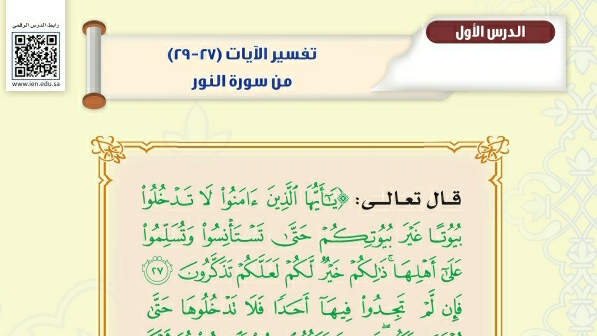 رابط الدرس الرقمي
www.ien.edu.sa
الدرس الأول
تفسير الآيات (٢٧-٢٩)
من سورة النور
قال تعالى: ﴿يَٰٓأَيُّهَا ٱلَّذِينَ ءَامَنُوا۟ لَا تَدْخُلُوا۟
بُيُوتًا غَيْرَ بُيُوتِكُمْ حَتَّىٰ تَسْتَأْنِسُوا۟ وَتُسَلِّمُوا۟
عَلَىٰٓ أَهْلِهَا ۚ ذَٰلِكُمْ خَيْرٌ لَّكُمْ لَعَلَّكُمْ تَذَكَّرُونَ ٢٧
فَإِن لَّمْ تَجِدُوا۟ فِيهَآ أَحَدًا فَلَا تَدْخُلُوهَا حَتَّىٰ